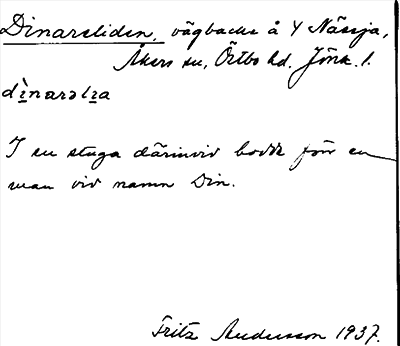 Dinareliden, vägbacke å Y Nässja,
Åkers sn, Östbo hd. Jönk. l.
dìnarəlıa
I en stuga därinvid bodde förr en
man vid namn Din.
Fritz Andersson 1937.